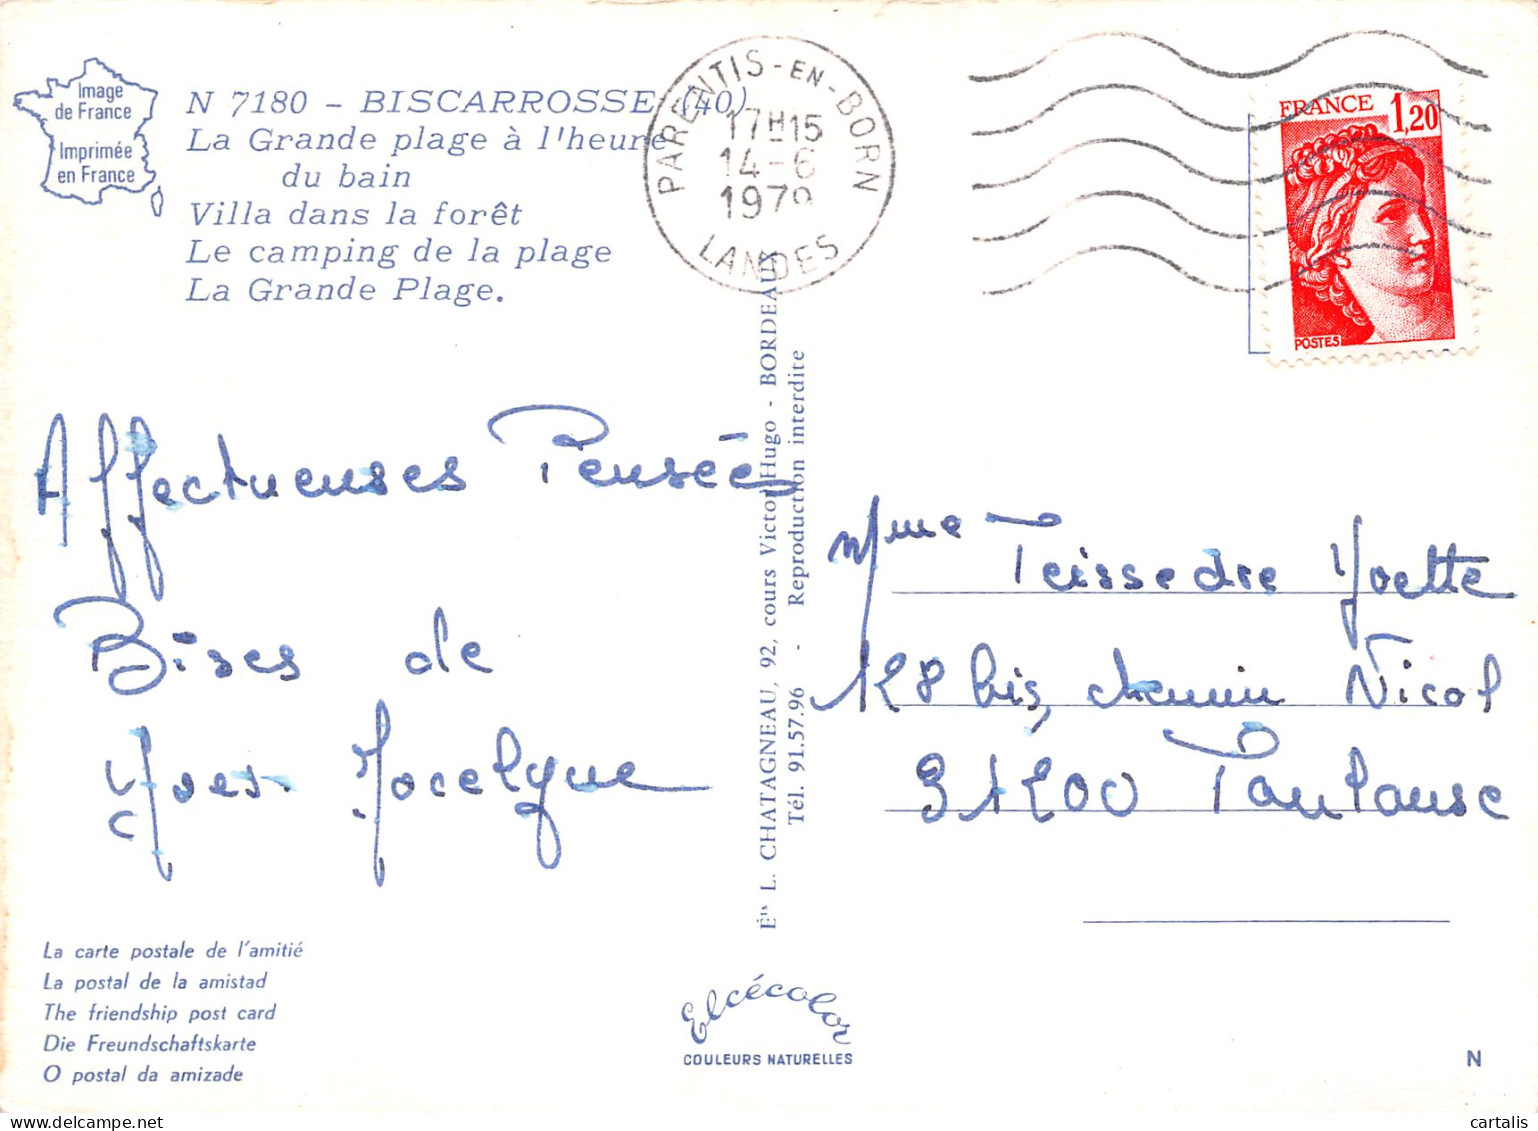 Image
de France
Imprimée
en France
N 7180 - BISCARROSSE (40)
La Grande plage à l'heure
du bain
Villa dans la forêt
Le camping de la plage
La Grande Plage.
PARENTIS-EN-BORN
17H15
14-6
1979
LANDES
FRANCE 1,20
POSTES
Affectueuses Pensées
Bises de
Yves. Jocelyne
Ets L. CHATAGNEAU, 92, cours Victor Hugo - BORDEAUX
Tél. 91.57.96 - Reproduction interdite
Mme Teissedre Yvette
128 bis, chemin Nicol
31200 Toulouse
La carte postale de l'amitié
La postal de la amistad
The friendship post card
Die Freundschaftskarte
O postal da amizade
Elcécolor
COULEURS NATURELLES
N
cartalis
delcampe.net